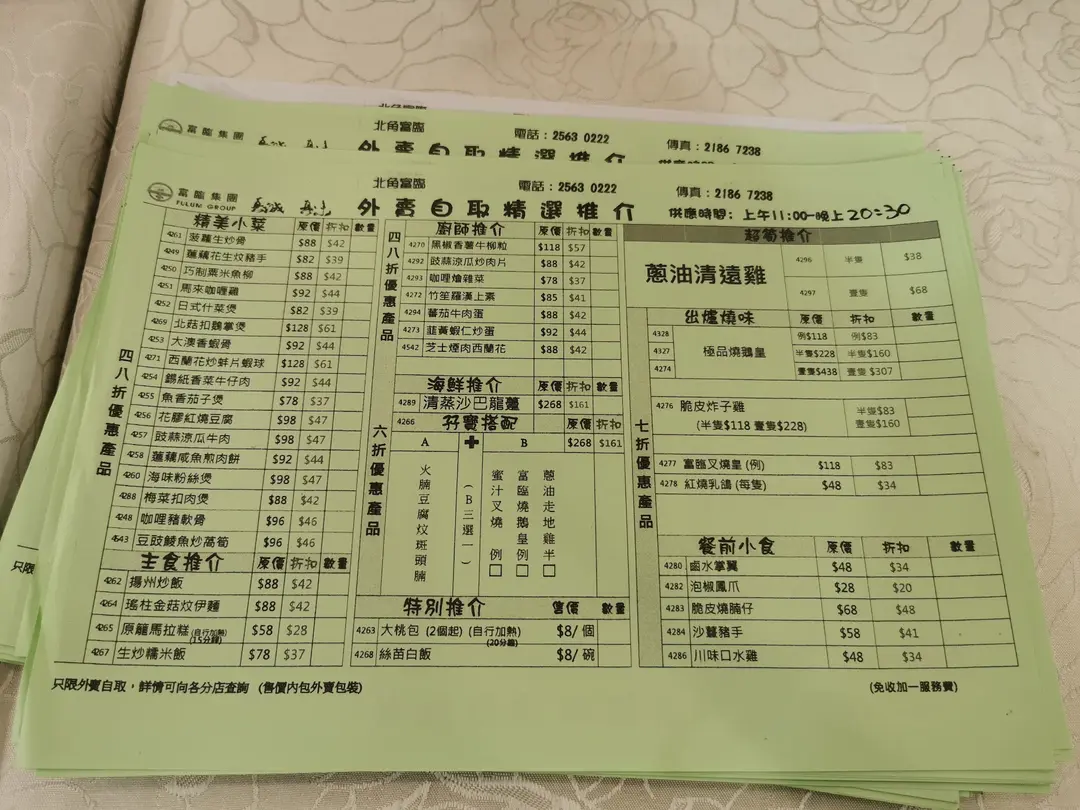 北角富臨
富臨集團 北角富臨 電話：2563 0222 傳真：2186 7238
外賣自取精選推介
富臨集團 北角富臨 電話：2563 0222 傳真：2186 7238
FULUM GROUP 外賣自取精選推介 供應時間：上午11:00-晚上20:30
精美小菜 原價 折扣 數量
4261 菠蘿生炒骨 $88 $42
4249 蓮藕花生炆豬手 $82 $39
4250 巧制粟米魚柳 $88 $42
4251 馬來咖喱雞 $92 $44
4252 日式什菜煲 $82 $39
4269 北菇扣鵝掌煲 $128 $61
4253 大澳香蝦骨 $92 $44
4271 西蘭花炒蚌片蝦球 $128 $61
4254 錫紙香菜牛仔肉 $92 $44
4255 魚香茄子煲 $78 $37
4256 花膠紅燒豆腐 $98 $47
4257 豉蒜涼瓜牛肉 $98 $47
4258 蓮藕咸魚煎肉餅 $92 $44
4260 海味粉絲煲 $98 $47
4288 梅菜扣肉煲 $88 $42
4248 咖喱豬軟骨 $96 $46
4543 豆豉鯪魚炒萵筍 $96 $46
四八折優惠產品
主食推介 原價 折扣 數量
4262 揚州炒飯 $88 $42
4264 瑤柱金菇炆伊麵 $88 $42
4265 原籠馬拉糕(自行加熱) $58 $28
(15分鐘)
4267 生炒糯米飯 $78 $37
四八折優惠產品
廚師推介 原價 折扣 數量
4270 黑椒香薯牛柳粒 $118 $57
4292 豉蒜涼瓜炒肉片 $88 $42
4293 咖喱燴雜菜 $78 $37
4272 竹笙羅漢上素 $85 $41
4294 蕃茄牛肉蛋 $88 $42
4273 韮黃蝦仁炒蛋 $92 $44
4542 芝士煙肉西蘭花 $88 $42
六折優惠產品
海鮮推介 原價 折扣 數量
4289 清蒸沙巴龍躉 $268 $161
4266 孖寶搭配 原價 折扣
A ✚ B $268 $161
火腩豆腐炆斑頭腩
(B三選一)
蜜汁叉燒 例□
富臨燒鵝皇例□
蔥油走地雞半□
特別推介 售價 數量
4263 大桃包 (2個起) (自行加熱) $8/ 個
(20分鐘)
4268 絲苗白飯 $8/ 碗
超筍推介
蔥油清遠雞
4296 半隻 $38
4297 壹隻 $68
七折優惠產品
出爐燒味 原價 折扣 數量
極品燒鵝皇
4328 例$118 例$83
4327 半隻$228 半隻$160
4274 壹隻$438 壹隻 $307
4276 脆皮炸子雞 半隻$83
(半隻$118 壹隻$228) 壹隻$160
4277 富臨叉燒皇 (例) $118 $83
4278 紅燒乳鴿 (每隻) $48 $34
餐前小食 原價 折扣 數量
4280 鹵水掌翼 $48 $34
4282 泡椒鳳爪 $28 $20
4283 脆皮燒腩仔 $68 $48
4284 沙薑豬手 $58 $41
4286 川味口水雞 $48 $34
只限外賣自取，詳情可向各分店查詢 (售價內包外賣包裝)
(免收加一服務費)
只限